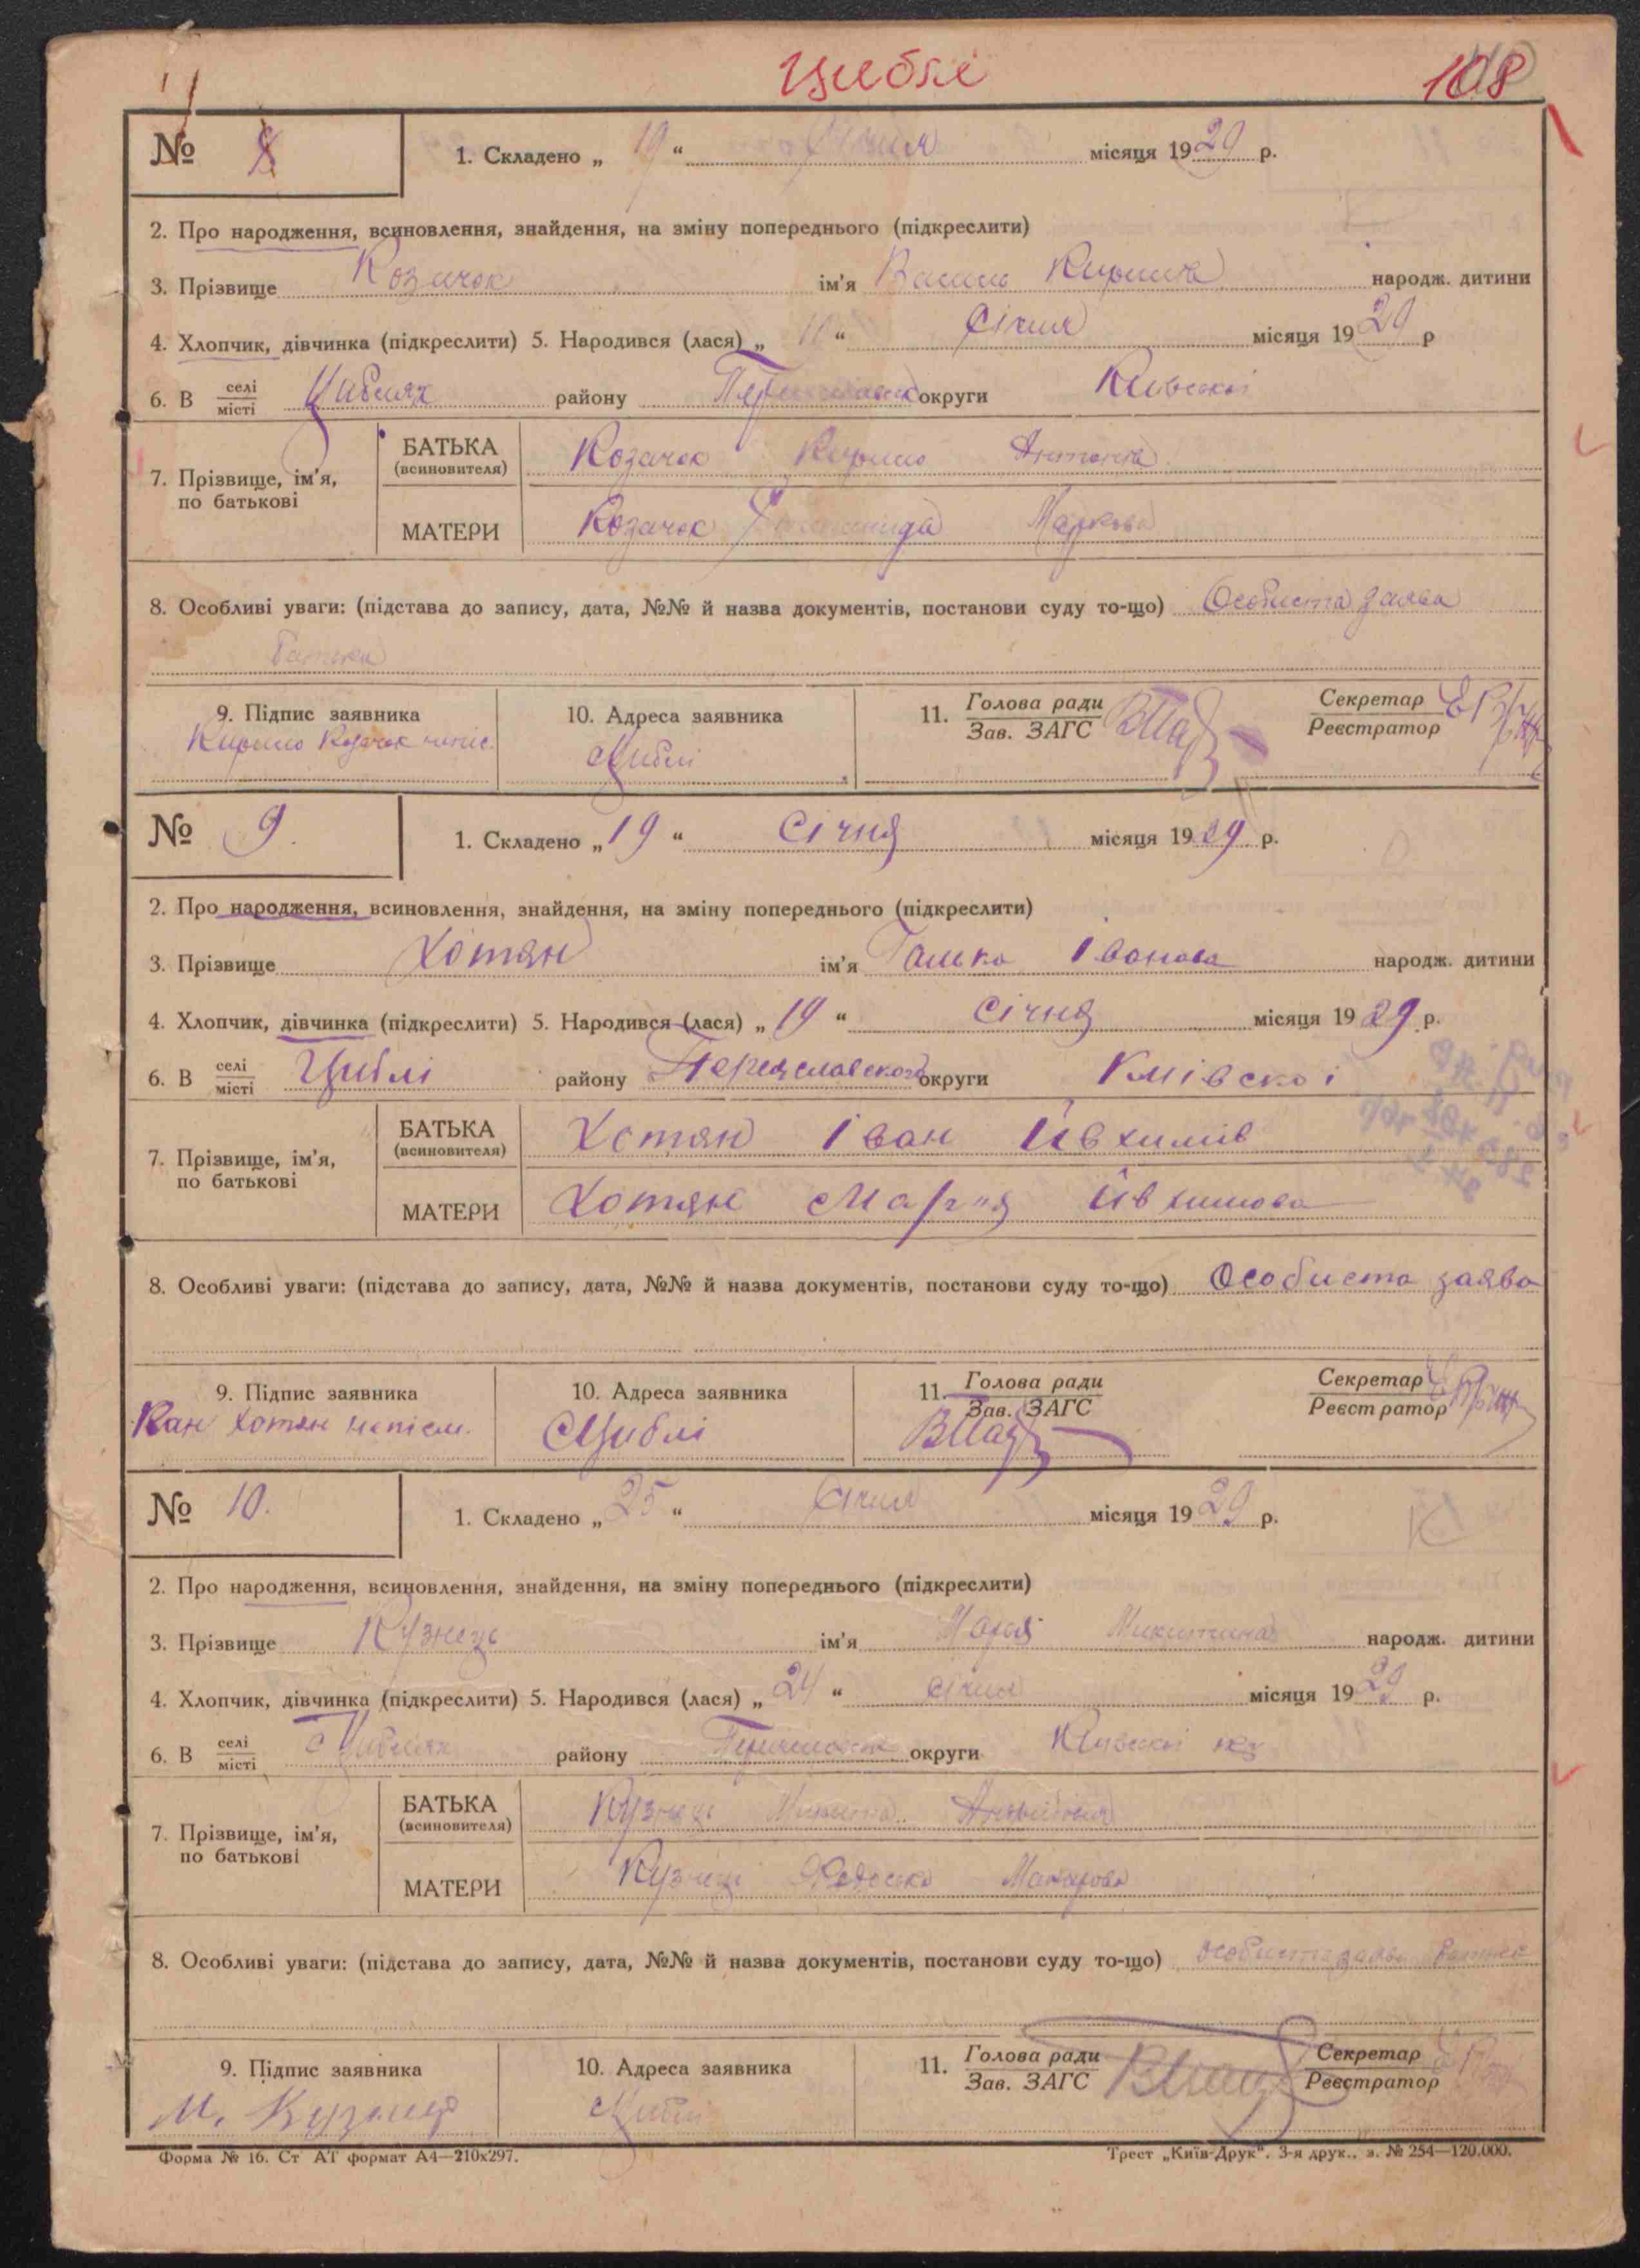 Циблі
108
№ 8
1. Складено „ 19 “ Січня місяця 1929 р.
2. Про народження, всиновлення, знайдення, на зміну попереднього (підкреслити)
3. Прізвище Козачок ім'я Василь Кирилів народж. дитини
4. Хлопчик, дівчинка (підкреслити) 5. Народився (лася) „ 11 “ Січня місяця 1929 р
6. В селі/місті Циблях району округи Київської
7. Прізвище, ім'я, по батькові
БАТЬКА (всиновителя) Козачок Кирило Антонів
МАТЕРИ Козачок Маркова
8. Особливі уваги: (підстава до запису, дата, №№ й назва документів, постанови суду то-що) Особиста заява
батька
9. Підпис заявника
Кирило Козачок непис.
10. Адреса заявника
с Циблі
11. Голова ради / Зав. ЗАГС
Секретар / Реєстратор
№ 9.
1. Складено „ 19 “ Січня місяця 1929 р.
2. Про народження, всиновлення, знайдення, на зміну попереднього (підкреслити)
3. Прізвище Хотян ім'я Галька Іванова народж. дитини
4. Хлопчик, дівчинка (підкреслити) 5. Народився (лася) „ 19 “ Січня місяця 1929 р.
6. В селі/місті Циблі району Переяславского округи Київскоі
7. Прізвище, ім'я, по батькові
БАТЬКА (всиновителя) Хотян Іван Йвхимів
МАТЕРИ Хотян Марія Йвхимова
8. Особливі уваги: (підстава до запису, дата, №№ й назва документів, постанови суду то-що) Особиста заява
9. Підпис заявника
Іван Хотян непісм.
10. Адреса заявника
с Циблі
11. Голова ради / Зав. ЗАГС
Секретар / Реєстратор
№ 10.
1. Складено „ 25 “ Січня місяця 1929 р.
2. Про народження, всиновлення, знайдення, на зміну попереднього (підкреслити)
3. Прізвище Кузнець ім'я Марія Микитина народж. дитини
4. Хлопчик, дівчинка (підкреслити) 5. Народився (лася) „ 24 “ січня місяця 1929 р.
6. В селі/місті с Циблях району округи Київської окр
7. Прізвище, ім'я, по батькові
БАТЬКА (всиновителя) Кузнець Микита
МАТЕРИ Кузнець Федоска Макарова
8. Особливі уваги: (підстава до запису, дата, №№ й назва документів, постанови суду то-що) особиста заява батька
9. Підпис заявника
М. Кузнец
10. Адреса заявника
с Циблі
11. Голова ради / Зав. ЗАГС
Секретар / Реєстратор
Форма № 16. Ст АТ формат А4—210х297.
Трест „Київ-Друк“. 3-я друк., з. № 254—120.000.